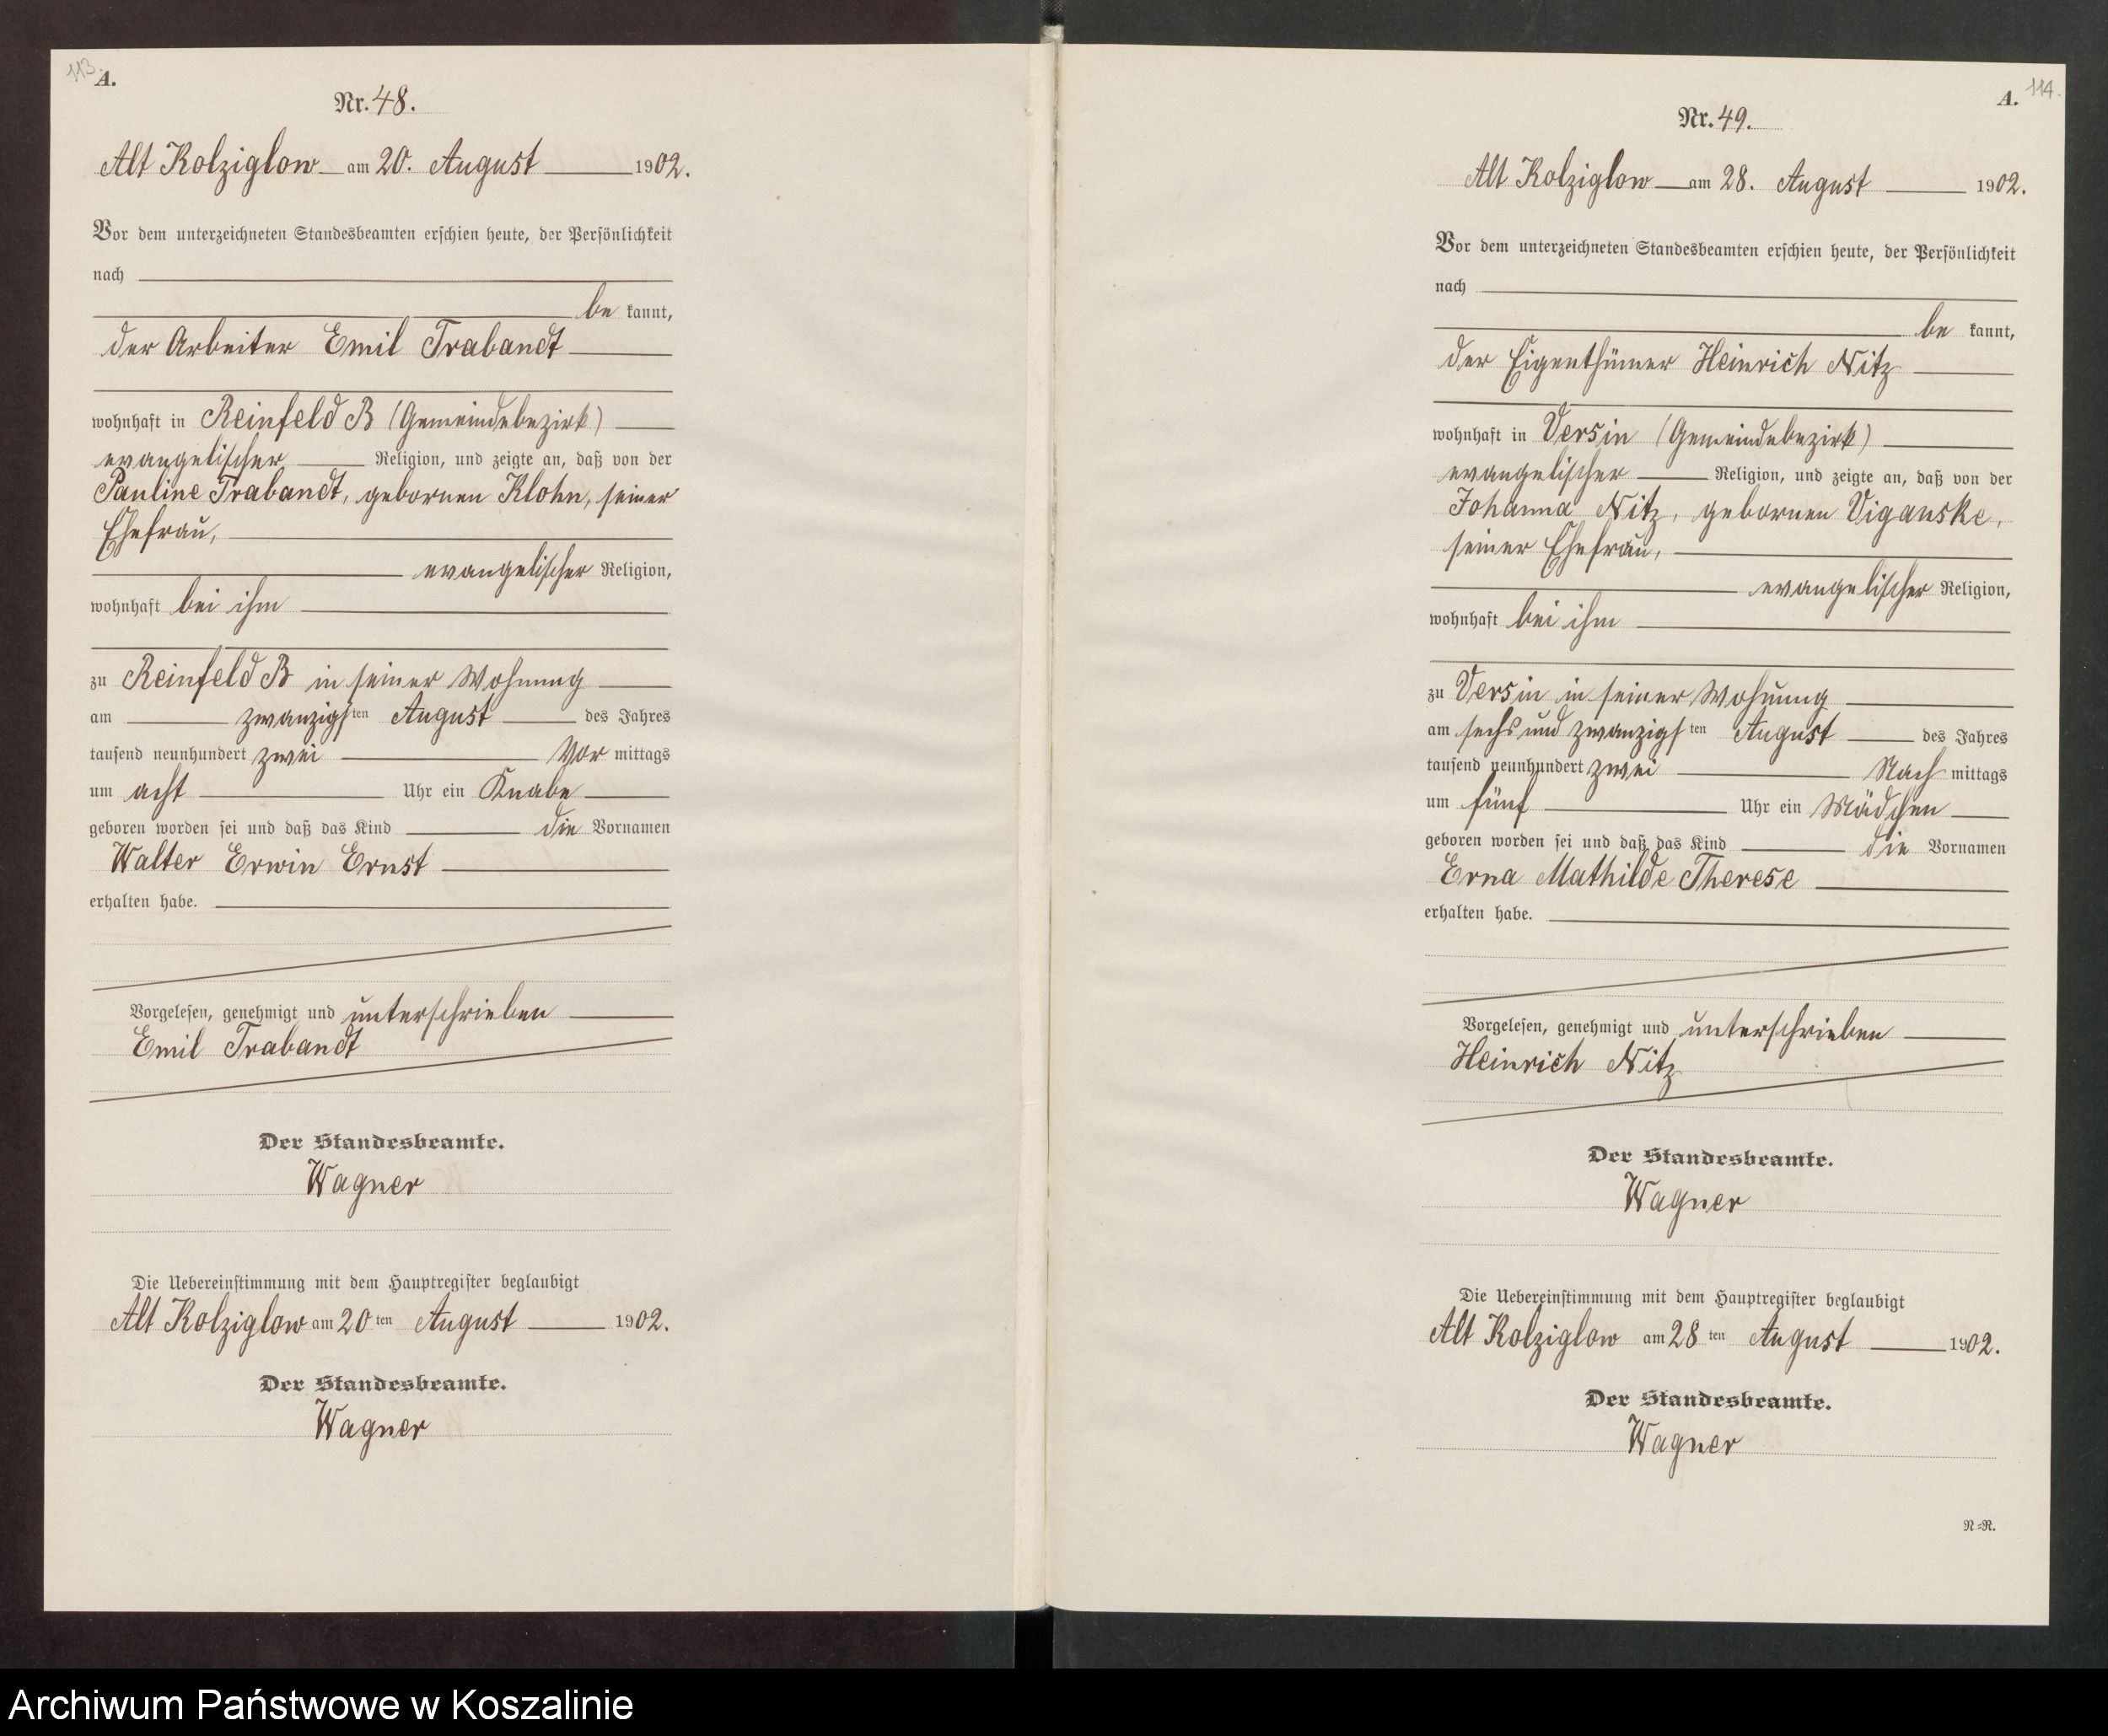 113. A.
Nr. 48.
Alt Kolziglow am 20. August 1902.
Vor dem unterzeichneten Standesbeamten erschien heute, der Persönlichkeit
nach
be kannt,
der Arbeiter Emil Trabandt
wohnhaft in Reinfeld B (Gemeindebezirk)
evangelischer Religion, und zeigte an, daß von der
Pauline Trabandt, gebornen Klohn, seiner
Ehefrau,
evangelischer Religion,
wohnhaft bei ihm
zu Reinfeld B in seiner Wohnung
am zwanzigsten August des Jahres
tausend neunhundert zwei Vor mittags
um acht Uhr ein Knabe
geboren worden sei und daß das Kind die Vornamen
Walter Erwin Ernst
erhalten habe.
Vorgelesen, genehmigt und unterschrieben
Emil Trabandt
Der Standesbeamte.
Wagner
Die Uebereinstimmung mit dem Hauptregister beglaubigt
Alt Kolziglow am 20 ten August 1902.
Der Standesbeamte.
Wagner
A. 114.
Nr. 49.
Alt Kolziglow am 28. August 1902.
Vor dem unterzeichneten Standesbeamten erschien heute, der Persönlichkeit
nach
be kannt,
der Eigenthümer Heinrich Nitz
wohnhaft in Versin (Gemeindebezirk)
evangelischer Religion, und zeigte an, daß von der
Johanna Nitz, gebornen Viganske,
seiner Ehefrau,
evangelischer Religion,
wohnhaft bei ihm
zu Versin in seiner Wohnung
am sechs und zwanzigsten August des Jahres
tausend neunhundert zwei Nach mittags
um fünf Uhr ein Mädchen
geboren worden sei und daß das Kind die Vornamen
Erna Mathilde Therese
erhalten habe.
Vorgelesen, genehmigt und unterschrieben
Heinrich Nitz
Der Standesbeamte.
Wagner
Die Uebereinstimmung mit dem Hauptregister beglaubigt
Alt Kolziglow am 28 ten August 1902.
Der Standesbeamte.
Wagner
N=R.
Archiwum Państwowe w Koszalinie